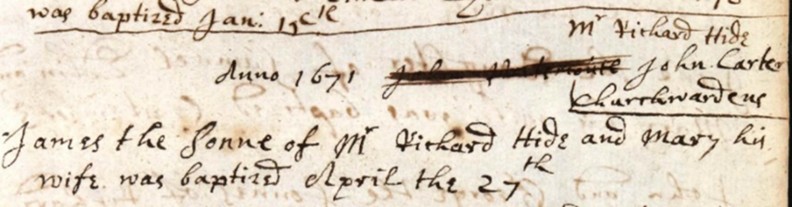 was baptized Jan: 15th
Mr Richard Hide
Anno 1671 John Carter
Churchwardens
James the Sonne of Mr Richard Hide and Mary his
wife was baptized April the 27th